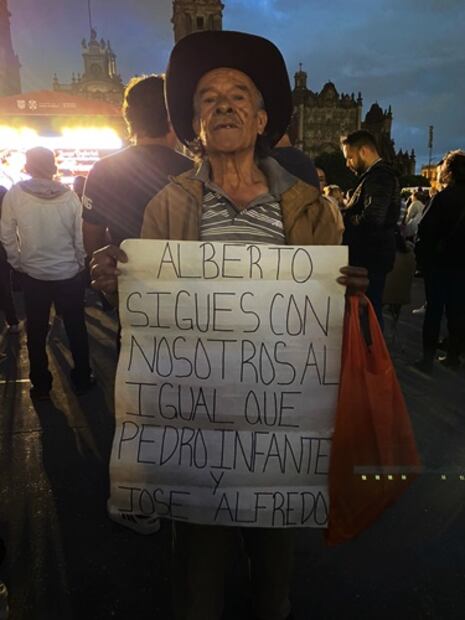 ALBERTO
SIGUES CON
NOSOTROS AL
IGUAL QUE
PEDRO INFANTE
Y
JOSE ALFREDO